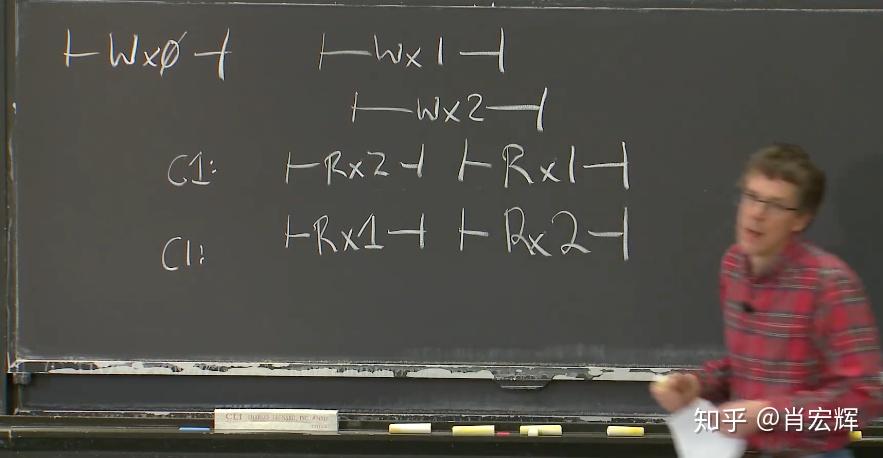 |-Wx0-| |-Wx1-|
|-Wx2-|
C1: |-Rx2-| |-Rx1-|
C1: |-Rx1-| |-Rx2-|
CLI
知乎 @肖宏辉